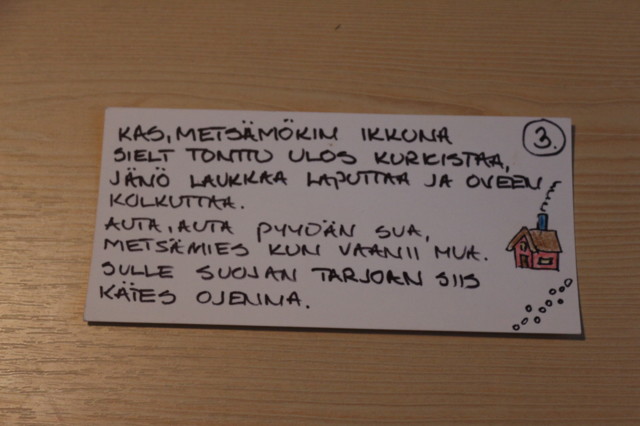 KAS, METSÄMÖKIN IKKUNA
3.
SIELT TONTTU ULOS KURKISTAA,
JÄNÖ LAUKKAA LAPUTTAA JA OVEEN
KOLKUTTAA.
AUTA, AUTA PYYDÄN SUA,
METSÄMIES KUN VAANII MUA.
SULLE SUOJAN TARJOAN SIIS
KÄTES OJENNA.